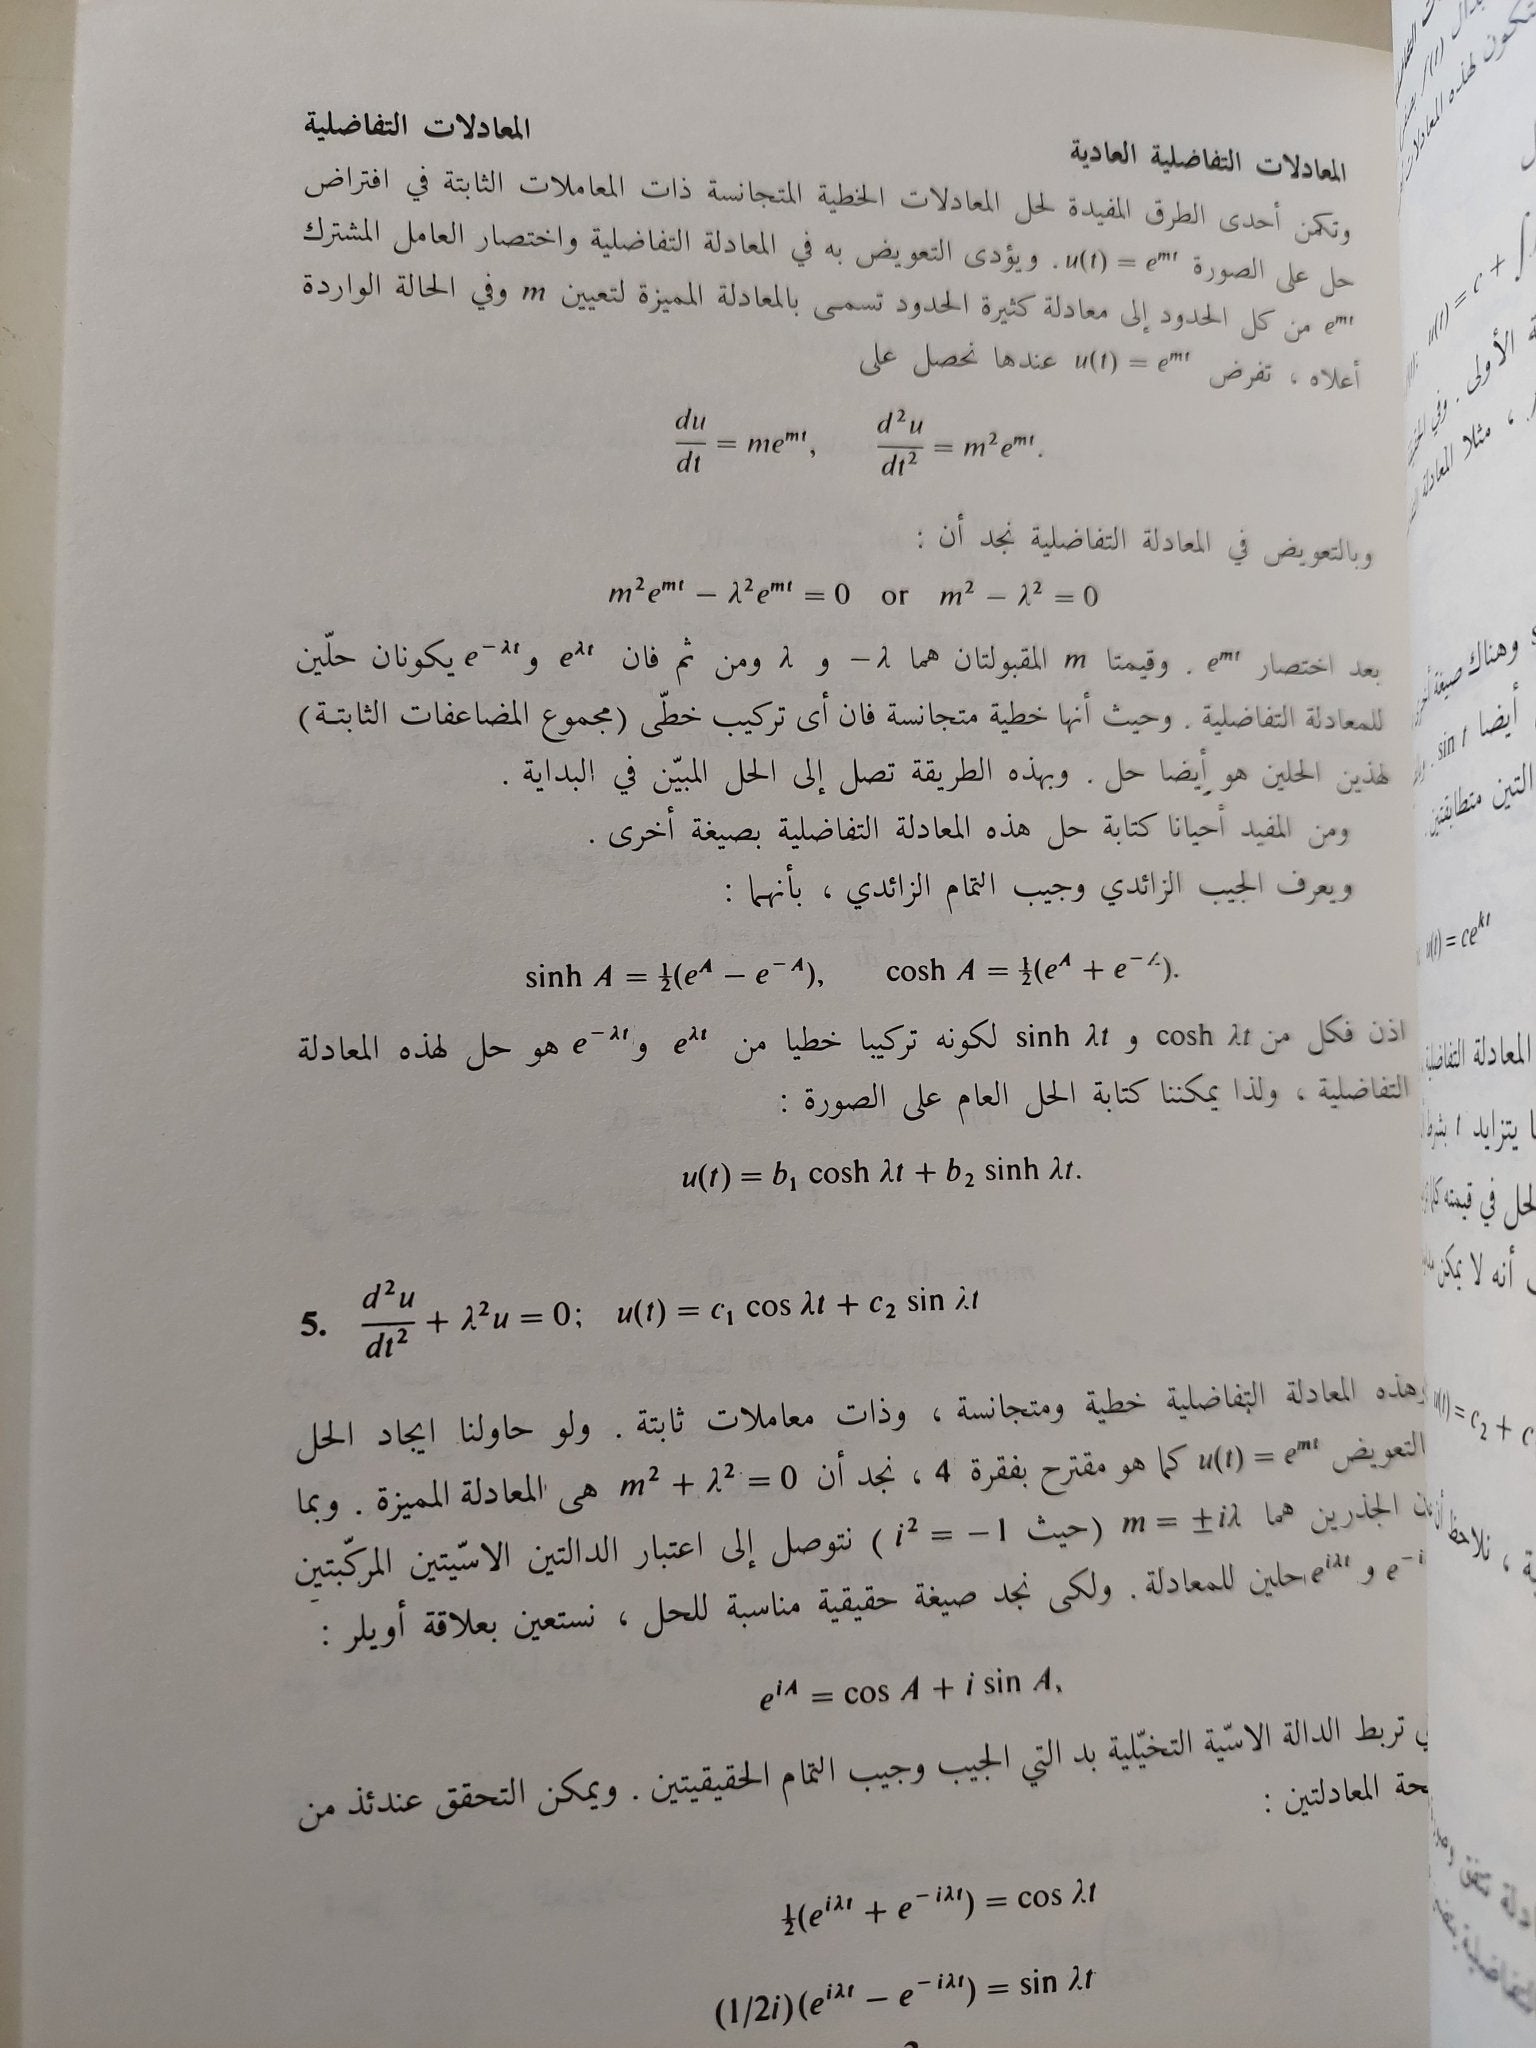 المعادلات التفاضلية
المعادلات التفاضلية العادية
وتكمن أحدى الطرق المفيدة لحل المعادلات الخطية المتجانسة ذات المعاملات الثابتة في افتراض
حل على الصورة u(t) = e^{mt}. ويؤدى التعويض به في المعادلة التفاضلية واختصار العامل المشترك
e^{mt} من كل الحدود إلى معادلة كثيرة الحدود تسمى بالمعادلة المميزة لتعيين m وفي الحالة الواردة
أعلاه ، تفرض u(t) = e^{mt} عندها نحصل على
du/dt = me^{mt}, d²u/dt² = m²e^{mt}.
وبالتعويض في المعادلة التفاضلية نجد أن :
m²e^{mt} − λ²e^{mt} = 0 or m² − λ² = 0
بعد اختصار e^{mt} . وقيمتا m المقبولتان هما λ− و λ ومن ثم فان e^{λt} و e^{−λt} يكونان حلّين
للمعادلة التفاضلية . وحيث أنها خطية متجانسة فان أى تركيب خطّى (مجموع المضاعفات الثابتة)
لهذين الحلين هو أيضا حل . وبهذه الطريقة تصل إلى الحل المبيّن في البداية .
ومن المفيد أحيانا كتابة حل هذه المعادلة التفاضلية بصيغة أخرى .
ويعرف الجيب الزائدي وجيب التمام الزائدي ، بأنهما :
sinh A = ½(e^A − e^{−A}), cosh A = ½(e^A + e^{−A}).
اذن فكل من cosh λt و sinh λt لكونه تركيبا خطيا من e^{λt} و e^{−λt} هو حل لهذه المعادلة
التفاضلية ، ولذا يمكننا كتابة الحل العام على الصورة :
u(t) = b₁ cosh λt + b₂ sinh λt.
5. d²u/dt² + λ²u = 0; u(t) = c₁ cos λt + c₂ sin λt
وهذه المعادلة التفاضلية خطية ومتجانسة ، وذات معاملات ثابتة . ولو حاولنا ايجاد الحل
التعويض u(t) = e^{mt} كما هو مقترح بفقرة 4 ، نجد أن m² + λ² = 0 هى المعادلة المميزة . وبما
الجذرين هما m = ±iλ (حيث i² = −1 ) نتوصل إلى اعتبار الدالتين الاسّيتين المركّبتين
و e^{iλt} حلين للمعادلة . ولكى نجد صيغة حقيقية مناسبة للحل ، نستعين بعلاقة أويلر :
e^{iA} = cos A + i sin A,
تربط الدالة الاسّية التخيّلية بد التي الجيب وجيب التمام الحقيقيتين . ويمكن التحقق عندئذ من
المعادلتين :
½(e^{iλt} + e^{−iλt}) = cos λt
(1/2i)(e^{iλt} − e^{−iλt}) = sin λt